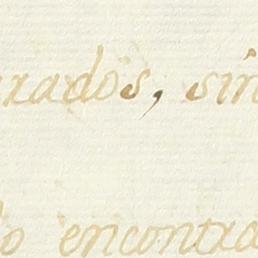 rados, sin
do encontra